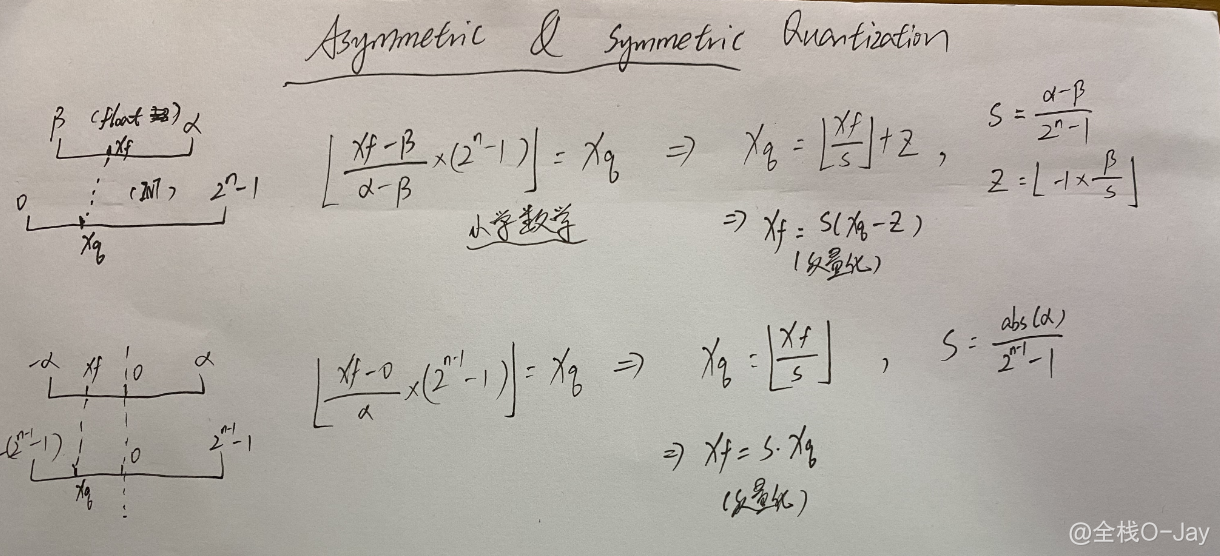 Asymmetric & Symmetric Quantization
β (float) α
xf
(INT)
0 2ⁿ-1
xq
⌊(xf-β)/(α-β)×(2ⁿ-1)⌋ = xq ⇒ xq = ⌊xf/s⌋+Z , S = (α-β)/(2ⁿ-1)
Z = ⌊-1×β/s⌋
小学数学
⇒ xf = S(xq-Z)
(反量化)
-α xf 0 α
-(2ⁿ⁻¹-1) 0 2ⁿ⁻¹-1
xq
⌊(xf-0)/α×(2ⁿ⁻¹-1)⌋ = xq ⇒ xq = ⌊xf/s⌋ , S = abs(α)/(2ⁿ⁻¹-1)
⇒ xf = S·xq
(反量化)
@全栈O-Jay